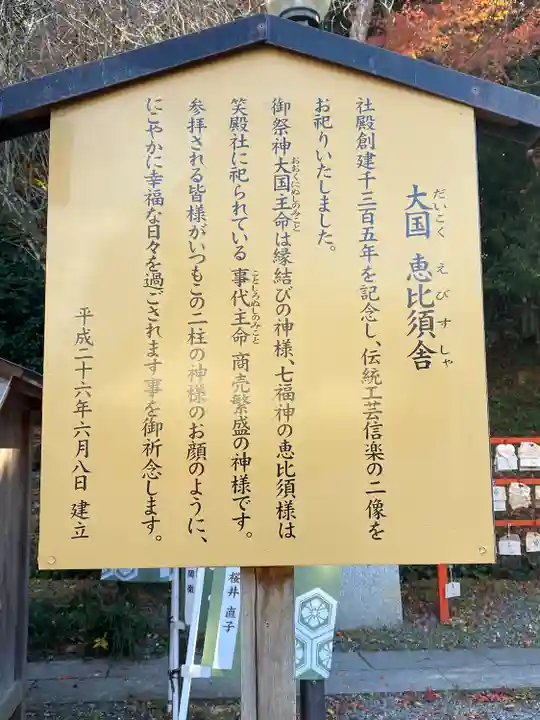 大国 恵比須舎
だいこく えびすしゃ
社殿創建千三百五年を記念し、伝統工芸信楽の二像を
お祀りいたしました。
御祭神大国主命は縁結びの神様、七福神の恵比須様は
おおくにぬしのみこと
笑殿社に祀られている 事代主命 商売繁盛の神様です。
ことしろぬしのみこと
参拝される皆様がいつもこの二柱の神様のお顔のように、
にこやかに幸福な日々を過ごされます事を御祈念します。
平成二十六年六月八日 建立
桜井 直子